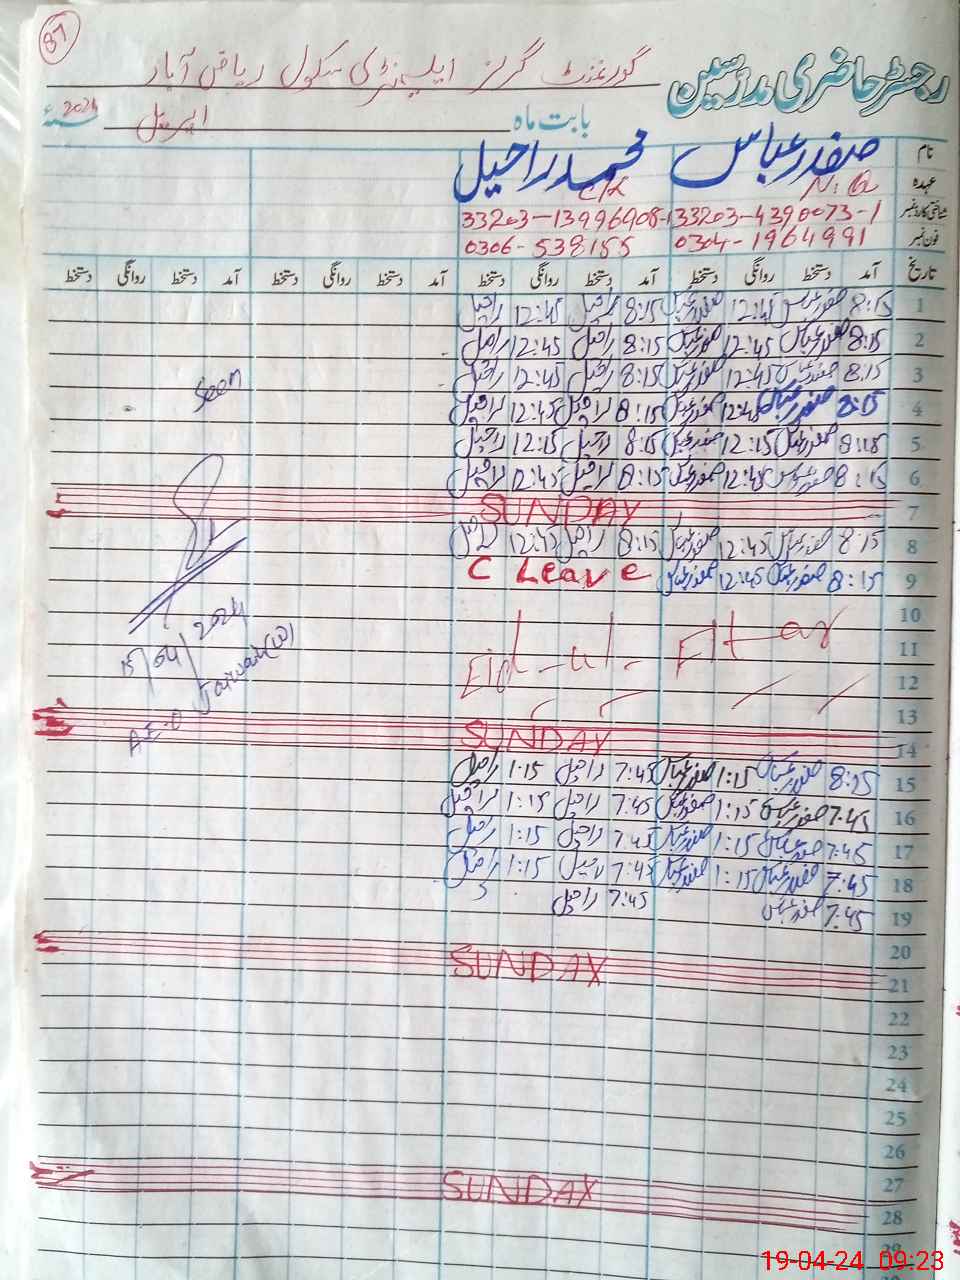 87
رجسٹر حاضری مدرسین گورنمنٹ گرلز ایلیمنٹری سکول ریاض آباد
بابت ماہ اپریل 2024ء
نام صفدر عباس محمد راحیل
عہدہ N.Q C/K
شناختی کارڈ نمبر 33203-4390073-1 33203-13996908-1
فون نمبر 0304-1964991 0306-538155
تاریخ آمد دستخط روانگی دستخط آمد دستخط روانگی دستخط آمد دستخط روانگی دستخط آمد دستخط روانگی دستخط
1 8:15 صفدر عباس 12:45 صفدر عباس 8:15 راحیل 12:45 راحیل
2 8:15 صفدر عباس 12:45 صفدر عباس 8:15 راحیل 12:45 راحیل
3 8:15 صفدر عباس 12:45 صفدر عباس 8:15 راحیل 12:45 راحیل
Seen
4 8:15 صفدر عباس 12:45 صفدر عباس 8:15 راحیل 12:45 راحیل
5 8:15 صفدر عباس 12:15 صفدر عباس 8:15 راحیل 12:15 راحیل
6 8:15 صفدر عباس 12:45 صفدر عباس 8:15 راحیل 12:45 راحیل
7 SUNDAY
8 8:15 صفدر عباس 12:45 صفدر عباس 8:15 راحیل 12:45 راحیل
9 8:15 صفدر عباس 12:45 صفدر عباس C Leave
10
11 Eid-ul-Fitar
12
15/04/2024
13
14 SUNDAY
A.E.O
15 8:15 صفدر عباس 1:15 صفدر عباس 7:45 راحیل 1:15 راحیل
16 7:45 صفدر عباس 1:15 صفدر عباس 7:45 راحیل 1:15 راحیل
17 7:45 صفدر عباس 1:15 صفدر عباس 7:45 راحیل 1:15 راحیل
18 7:45 صفدر عباس 1:15 صفدر عباس 7:45 راحیل 1:15 راحیل
19 7:45 صفدر عباس 7:45 راحیل
20
21 SUNDAY
22
23
24
25
26
27 SUNDAY
28
29
19-04-24 09:23